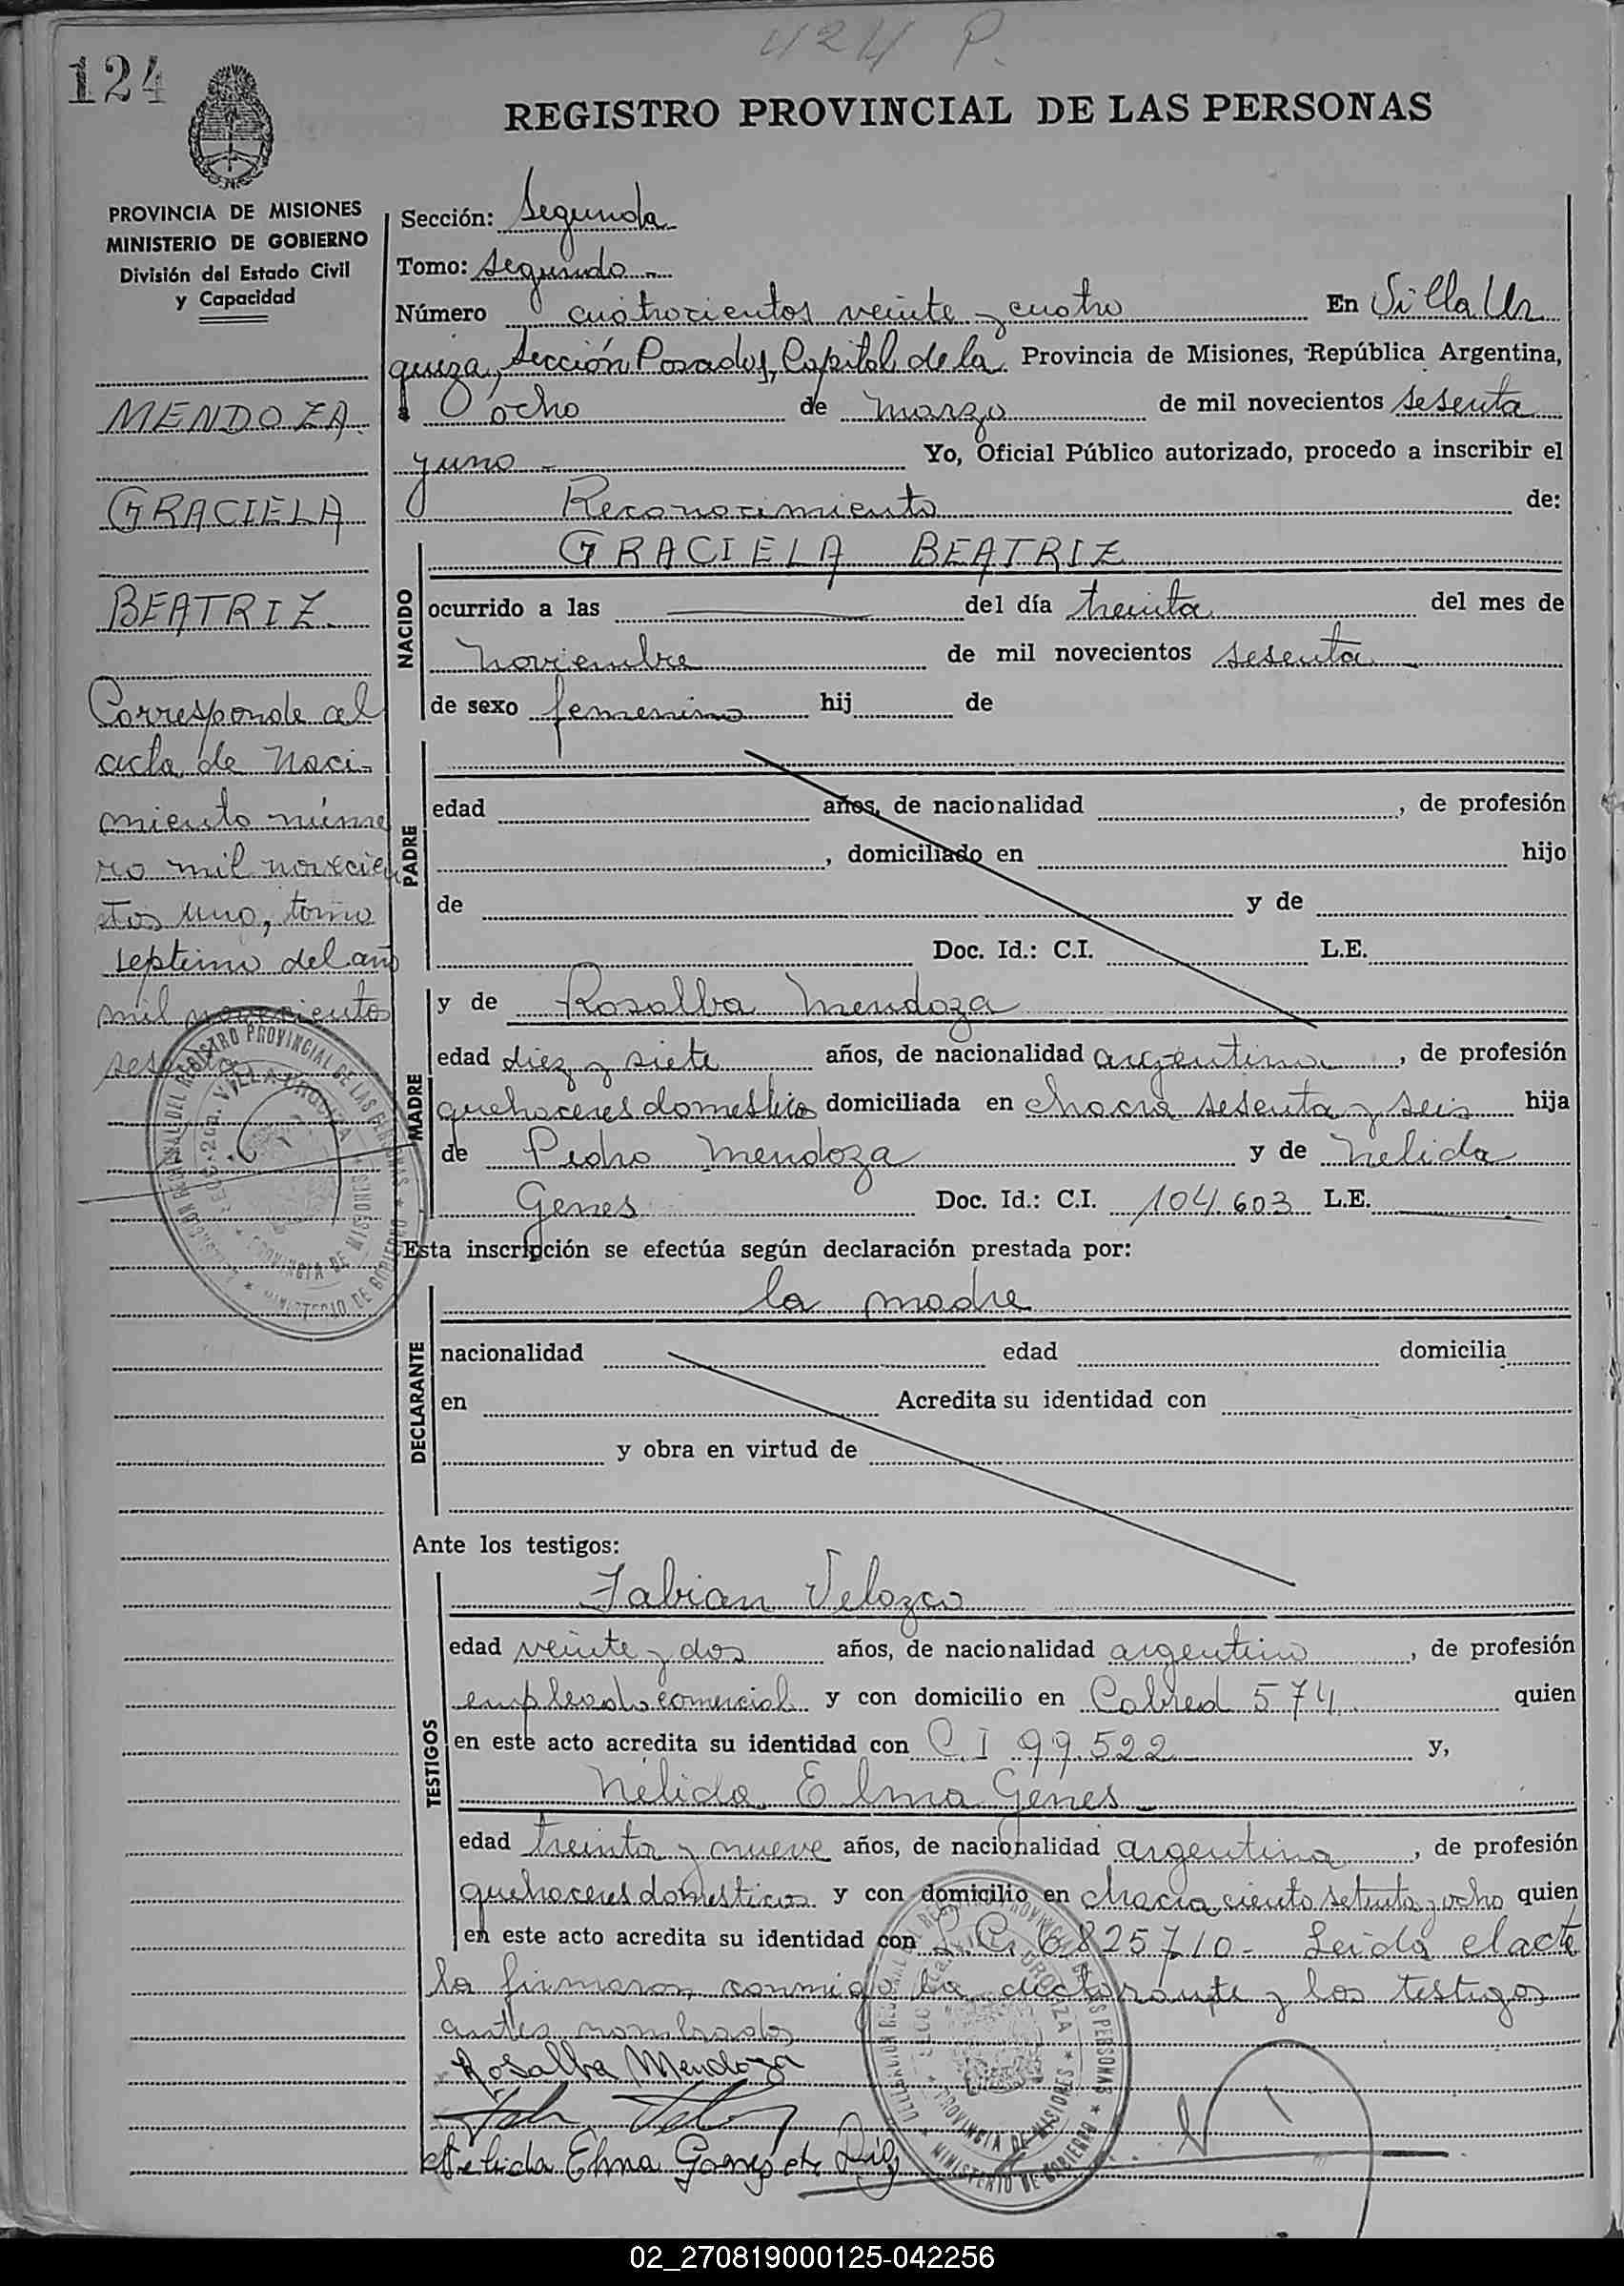 424 P.
124
REGISTRO PROVINCIAL DE LAS PERSONAS
PROVINCIA DE MISIONES
MINISTERIO DE GOBIERNO
División del Estado Civil
y Capacidad
MENDOZA
GRACIELA
BEATRIZ
Corresponde al
acta de Naci-
miento núme
ro mil novecien
tos uno, tomo
septimo del año
mil novecientos
sesenta
Sección: Segunda
Tomo: Segundo
Número cuatrocientos veinte y cuatro En Villa Ur
quiza, Sección Posadas, Capital de la Provincia de Misiones, República Argentina,
a ocho de marzo de mil novecientos sesenta
y uno - Yo, Oficial Público autorizado, procedo a inscribir el
Reconocimiento de:
NACIDO
GRACIELA BEATRIZ
ocurrido a las del día treinta del mes de
Noviembre de mil novecientos sesenta
de sexo femenino hij de
PADRE
edad años, de nacionalidad , de profesión
, domiciliado en hijo
de y de
Doc. Id.: C.I. L.E.
MADRE
y de Rosalba Mendoza
edad diez y siete años, de nacionalidad argentina, de profesión
quehaceres domesticos domiciliada en chacra sesenta y seis hija
de Pedro Mendoza y de Nelida
Genes Doc. Id.: C.I. 104.603 L.E.
Esta inscripción se efectúa según declaración prestada por:
DECLARANTE
la madre
nacionalidad edad domicilia
en Acredita su identidad con
y obra en virtud de
Ante los testigos:
TESTIGOS
Fabian Velozco
edad veinte y dos años, de nacionalidad argentino, de profesión
empleado comercial y con domicilio en Cabred 574 quien
en este acto acredita su identidad con C.I 99.522 y,
Nélida Elma Genes
edad treinta y nueve años, de nacionalidad argentina, de profesión
quehaceres domesticos y con domicilio en chacra ciento setenta y ocho quien
en este acto acredita su identidad con L.C. 6825710- Leida el acta
la firmaron conmigo la declarante y los testigos
antes nombrados
Rosalba Mendoza
Nelida Elma Genes de
02_270819000125-042256